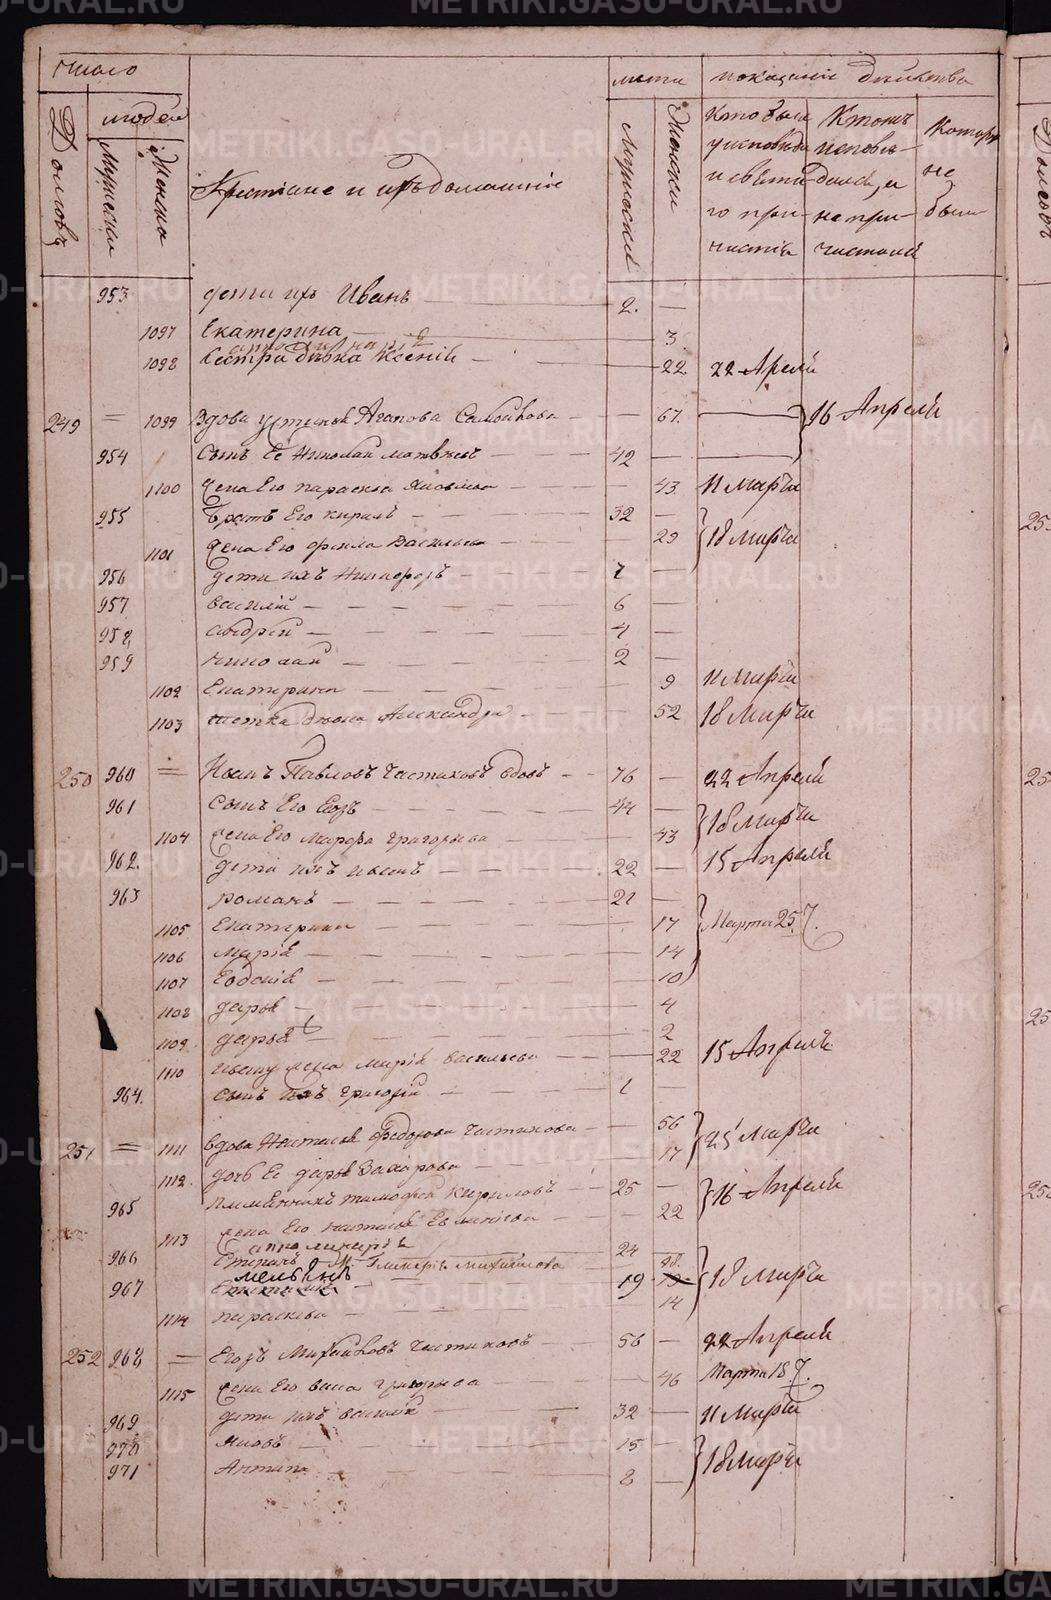 число
Домовъ
людей
Мужска
Женска
Крестьяне и ихъ домашніе
лѣта
Мужескъ
Женски
показаніе действа
Кто были у исповѣди и святаго причастія
Ктожъ исповѣдался, а не причастился
Которые не были
953 дети ихъ Иванъ 2. —
1097 Екатерина — 3.
1098 Сестра девка Ксенія — 22 22 Апреля
249 = 1099 Вдова Устинья Агапова — 67. 16 Апреля
954 Сынъ Ее Николай Матвеевъ — 42 —
1100 Жена Его Параскева Яковлева — 43 11 Марта
955 Братъ Его Кирилъ — 32 — 18 Марта
1101 Жена Его Васильева — 29
956 дети ихъ Никифоръ — 7 —
957 Василій — 6 —
958 Андрей — 4 —
959 Николай — 2 —
1102 Екатерина — 9 11 Марта
1103 тетка Александра — 52 18 Марта
250 960 = Иванъ Павловъ Частиховъ вдовъ — 76 — 22 Апреля
961 Сынъ Его Егоръ — 44 — 18 Марта
1104 Жена Его Марфа Григорьева — 43
962. дети ихъ Иванъ — 22 — 15 Апреля
963 Романъ — 21 —
1105 Екатерина — 17 Марта 25.
1106 Марія — 14
1107 Евдокія — 10
1108 Дарья — 4
1109 Дарья — 2
1110 Ивану жена Марія Васильева — 22 15 Апреля
964. Сынъ ихъ Григорій — 1 —
251 = 1111 Вдова Настасья Федорова Частихова — 56 25 Марта
1112 дочь Ее Дарья Захарова — 17
965 племянникъ Тимофей Кириловъ — 25 — 16 Апреля
1113 Жена Его Наталья — 22
966 Степанъ Гликерія Михайлова — 24 28. 18 Марта
967 19
1114 Параскева — 14
252 968 = Егоръ Михайловъ Частиховъ — 56 — 22 Апреля
1115 Жена Его Григорьева — 46 Марта 18
969 дети ихъ Василій — 32 — 11 Марта
970 Яковъ — 15 — 18 Марта
971 Антипа — 8 —
METRIKI.GASO-URAL.RU